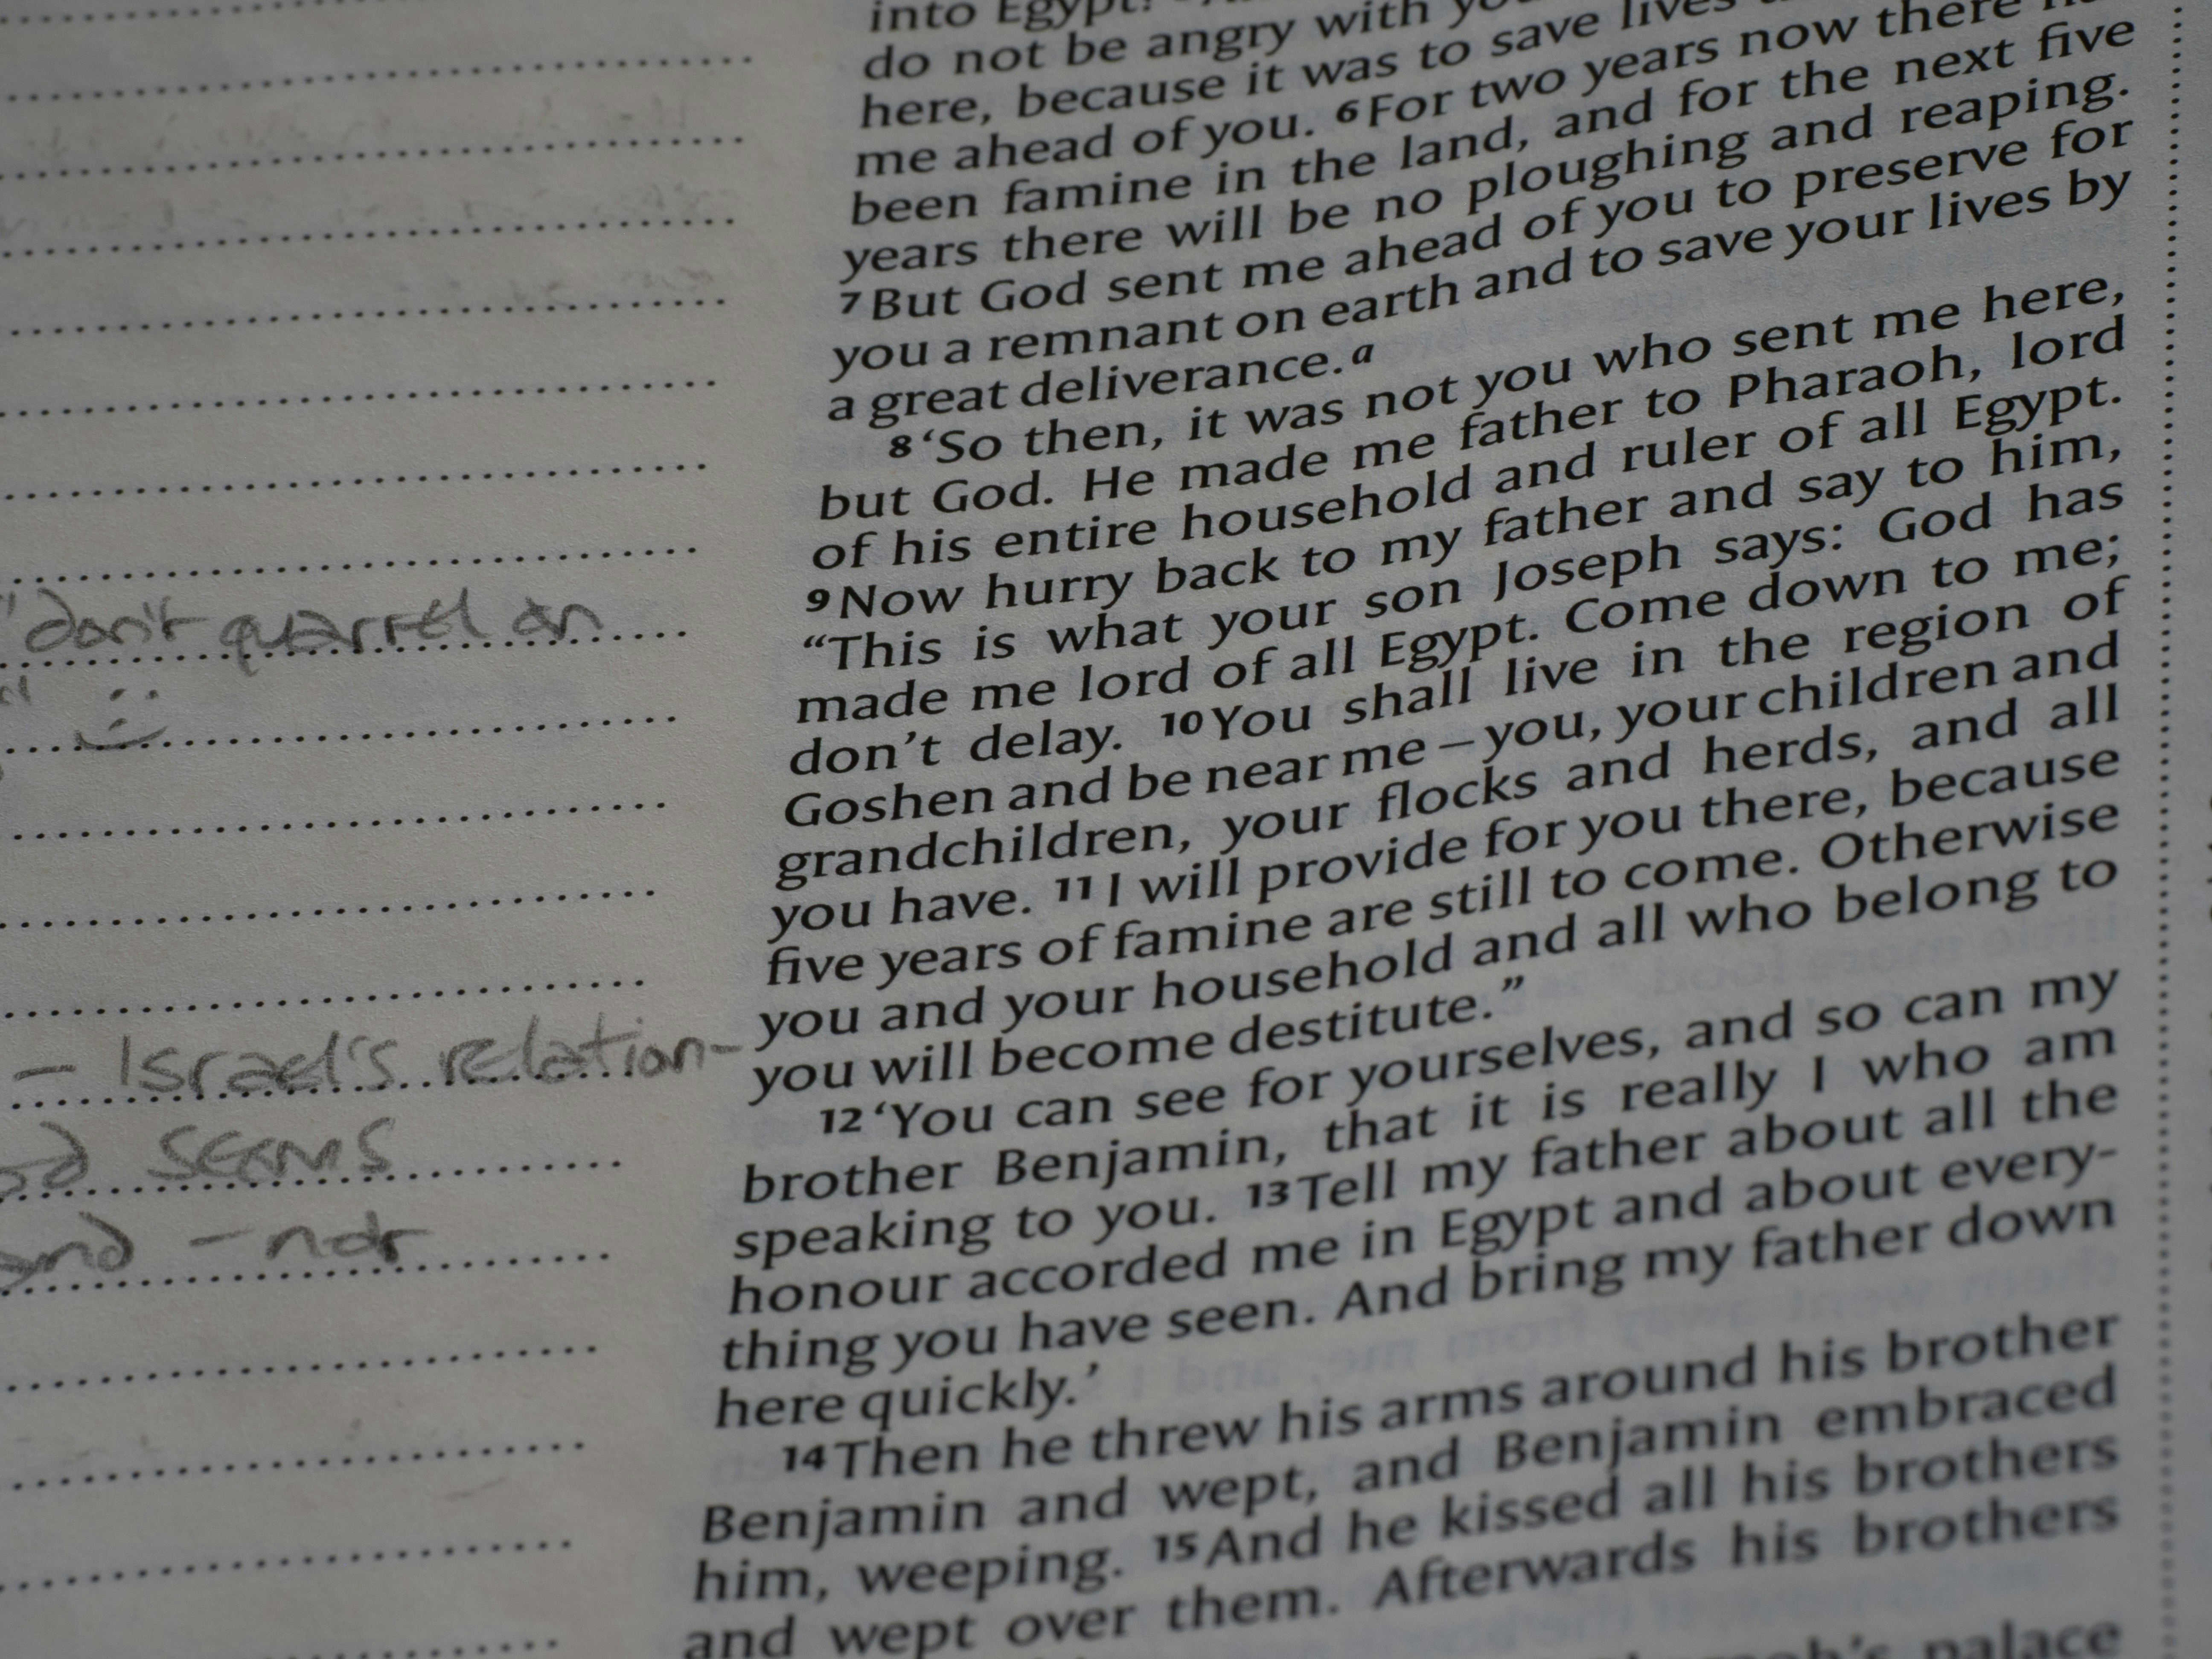 "don't quarrel on
- Israel's relation-
seems
and - ndr
into Egypt!
do not be angry with
here, because it was to save lives
me ahead of you. 6 For two years now there
been famine in the land, and for the next five
years there will be no ploughing and reaping.
7 But God sent me ahead of you to preserve for
you a remnant on earth and to save your lives by
a great deliverance.a
8 ‘So then, it was not you who sent me here,
but God. He made me father to Pharaoh, lord
of his entire household and ruler of all Egypt.
9 Now hurry back to my father and say to him,
“This is what your son Joseph says: God has
made me lord of all Egypt. Come down to me;
don’t delay. 10 You shall live in the region of
Goshen and be near me – you, your children and
grandchildren, your flocks and herds, and all
you have. 11 I will provide for you there, because
five years of famine are still to come. Otherwise
you and your household and all who belong to
you will become destitute.”
12 ‘You can see for yourselves, and so can my
brother Benjamin, that it is really I who am
speaking to you. 13 Tell my father about all the
honour accorded me in Egypt and about every-
thing you have seen. And bring my father down
here quickly.’
14 Then he threw his arms around his brother
Benjamin and wept, and Benjamin embraced
him, weeping. 15 And he kissed all his brothers
and wept over them. Afterwards his brothers
palace